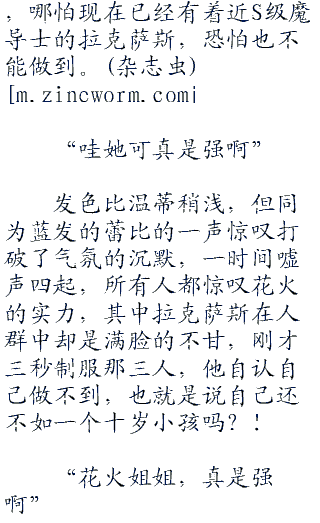 ，哪怕现在已经有着近S级魔
导士的拉克萨斯，恐怕也不
能做到。(杂志虫)
[m.zincworm.com]
“哇她可真是强啊”
发色比温蒂稍浅，但同
为蓝发的蕾比的一声惊叹打
破了气氛的沉默，一时间嘘
声四起，所有人都惊叹花火
的实力，其中拉克萨斯在人
群中却是满脸的不甘，刚才
三秒制服那三人，他自认自
己做不到，也就是说自己还
不如一个十岁小孩吗？！
“花火姐姐，真是强
啊”